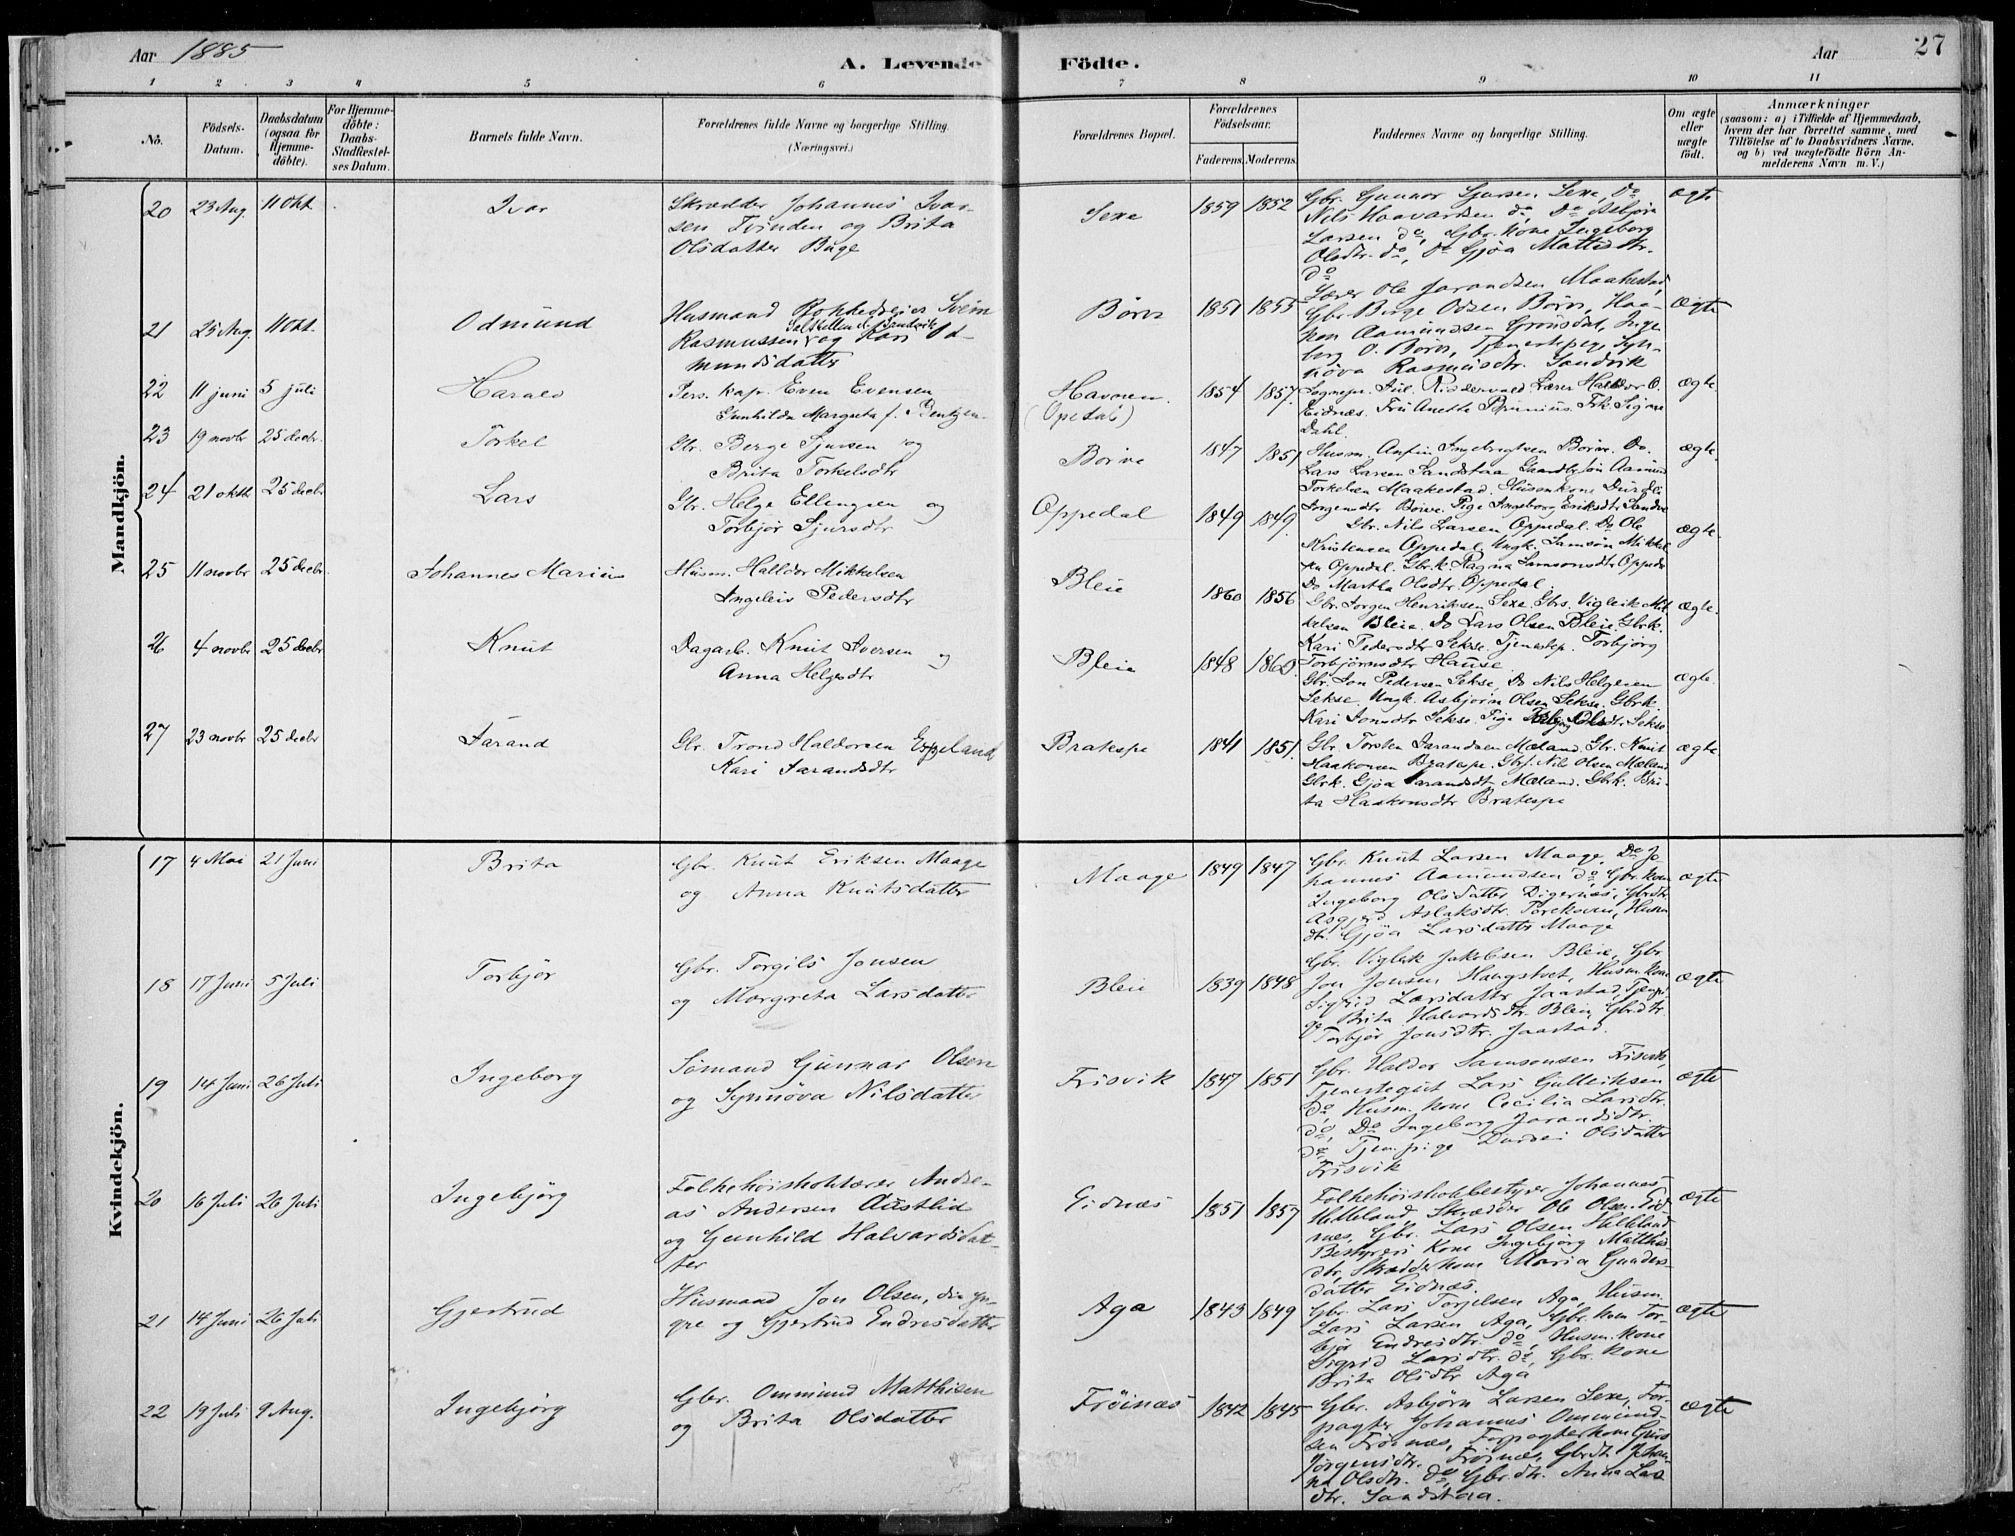 Aar 1885
A. Levende Födte.
Aar
27
1 2 3 4 5 6 7 8 9 10 11
No.
Födsels-Datum.
Daabsdatum (ogsaa for Hjemme-döbte).
For Hjemme-döbte: Daabs-Stadfæstel-ses Datum.
Barnets fulde Navn.
Forældrenes fulde Navne og borgerlige Stilling. (Næringsvei.)
Forældrenes Bopæl.
Forældrenes Födselsaar.
Faderens. Moderens.
Faddernes Navne og borgerlige Stilling.
Om ægte eller uægte födt.
Anmærkninger
(saasom: a) i Tilfælde af Hjemmedaab, hvem der har forrettet samme, med Tilföielse af to Daabsvidners Navne, og b) ved uægtefödte Börn An-melderens Navn m. V.)
Mandkjön.
20 23 Aug. 11 Okt. Ivar
Skrædder Johannes Ivar-
sen Tvinden og Brita
Olsdatter Buge
Sexe 1859 1852
Gbr. Gunnar Sjursen Sexe, Do
Nils Haavardsen do, Do Asbjørn
Larsen do, Gbr. kone Ingeborg
Olsdtr. do, Do Gjøa Mattisdtr.
do
ægte
21 25 Aug. 11 Okt. Odmund
Husmand Svein
Rasmussen og Kari Od-
mundsdatter
Børve 1851 1855
Lærer Ole Jarandsen Maakestad,
Gbr. Birge Odsen Børve, Haa-
kon Aamundsen Grønsdal, Inge-
borg O. Børve, Tjenestepige Syn-
nøva Rasmusdtr. Sandvik
ægte
22 11 juni 5 juli Harald
Pers. kap. Even Evensen
Gunhilda Margreta f. Bentzen
Havnen (Opedal) 1854 1857
Sognepr. Jul. Riddervold Lærer Haldor O.
Eidnæs. Fru Anette Brunius. Frk. Signe
Dahl
ægte
23 19 novbr 25 decbr. Torkel
Gbr. Berge Sjursen og
Brita Torkelsdtr
Børve 1847 1851
Husm. Anfin Ingebrigtsen Børve. Do
Lars Larsen Sandstaa Aamund
Torkelsen Maakestad. Husmkone Durdei
Jørgensdtr Børve. Pige Ingeborg Eriksdtr Sandve
ægte.
24 21 oktb 25 decbr Lars
Gbr. Helge Ellengsen og
Torbjør Sjursdtr
Oppedal 1849 1849
Gbr. Nils Larsen Oppedal. Do Ole
Kristensen Oppedal. Ungk. Samson Mikkel
sen Oppedal. Gbr.k. Ragna Samsonsdtr Oppeda
Do Martha Olsdtr. Oppedal.
ægte.
25 11 novbr 25 decbr Johannes Marius
Husm. Halldor Mikkelsen
Angeleiv Pedersdtr
Bleie 1860 1856
Gbr. Jørgen Henriksen Sexe. Gbrs. Vigleik Mik
kelsen Bleie. Do Lars Olsen Bleie. Gbrk.
Kari Pedersdtr Sekse. Tjenestep. Torbjørg
Torbjørnsdtr Hause
ægte.
26 4 novbr 25 decbr Knut
Dagarb. Knut Iversen og
Anna Helgesdtr
Bleie 1848 1860.
Gbr. Jon Pedersen Sekse. Do Nils Helgesen
Sekse. Ungk. Asbjørn Olsen Sekse. Gbrk.
Kari Jonsdtr Sekse. Pige Torbjørg Olsdtr. Sekse
ægte.
27 23 novbr 25 decbr Jarand
Gbr. Trond Haldorsen Espeland
Kari Jarandsdtr
Bratespe 1841 1851.
Gbr. Torsten Jarandsen Mæland. Gbr. Knut
Haakonsen Bratespe. Gbrf. Nils Olsen Mæland
Gbrk. Gjøa Jarandsdtr Mæland. Gbrk. Bri-
ta Haakonsdtr Bratespe
ægte
Kvindekjön.
17 4 Mai 21 Juni Brita
Gbr. Knut Eriksen Maage
og Anna Knutsdatter
Maage 1849 1847
Gbr. Knut Larsen Maage, Do Jo-
hannes Aamundsen do, Gbr. kone
Ingeborg Olsdatter Digernæs, Gbrdtr.
Asgjerd Aslaksdtr. Torekoven, Husm
dtr. Gjøa Larsdatter Maage
ægte
18 17 Juni 5 Juli Torbjør
Gbr. Torgils Jonsen
og Margreta Larsdatter
Bleie 1839 1848
Gbr. Viglik Jakobsen Bleie, Gbr.
Jon Jonsen Haugstvet, Husm. kone
Sigrid Larsdatter Jaastad, Tjenepi-
ge Brita Halvardsdtr. Bleie, Gbrdtr.
Torbjør Jonsdtr. Jaastad.
ægte
19 14 Juni 26 Juli Ingeborg
Sømand Gunnar Olsen
og Synnøva Nilsdatter
Frisvik 1847 1851
Gbr. Haldor Samsonsen Frisvik,
Tjenestegut Lars Gulleiksen
do, Husm. kone Cecilia Larsdtr.
do, Do Ingeborg Jarandsdtr.
do, Tjen. pige Durdei Olsdatter
Frisvik
ægte
20 16 Juli 26 Juli Ingebjörg
Folkehøiskolelærer Andre-
as Andersen Austlid
og Gunhild Halvardsdat-
ter
Eidnæs 1851 1857
Folkehøiskolebestyrer Johannes
Helleland Skrædder Ole Olsen Eid-
næs, Gbr. Lars Olsen Helleland
Bestyrers kone Ingebjørg Matthis-
dtr, Skrædderkone Maria Gunders-
datter Eidnæs.
ægte
21 14 Juni 26 Juli Gjertrud
Husmand Jon Olsen,
og Gjertrud Endresdatter
Aga 1843 1849
Gbr. Lars Torjelsen Aga, Husm.
Lars Larsen Aga, Gbr. kone Tor-
bjør Endresdtr. do, Husm. kone
Sigrid Larsdtr. do, Gbr. kone
Brita Olsdtr Aga
ægte
22 19 Juli 9 Aug. Ingebjörg
Gbr. Ommund Matthisen
og Brita Olsdatter
Frøinæs 1842 1845
Gbr. Asbjørn Larsen Sexe, For-
pagter Johannes Ommund-
sen Frøinæs, Forpagterkone Guro
Jørgensdtr. Frøinæs, Gbrdtr. Johan-
na Olsdtr. do, Gbr. dtr. Anna Lars
dtr. Sandstaa.
ægte